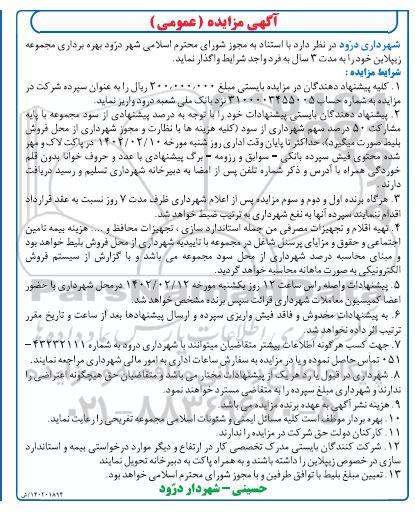 آگهی مزایده (عمومی)
شهرداری درود در نظر دارد با استناد به مجوز شورای محترم اسلامی شهر درود بهره برداری مجموعه
زیپلاین خود را به مدت ۳ سال به فرد واجد شرایط واگذار نماید.
شرایط مزایده :
۱. کلیه پیشنهاد دهندگان در مزایده بایستی مبلغ ۲۰۰،۰۰۰،۰۰۰ ریال را به عنوان سپرده شرکت در
مزایده به شماره حساب ۳۱۰۰۰۰۳۴۵۵۰۰۵ نزد بانک ملی شعبه درود واریز نماید.
۲. پیشنهاد دهندگان بایستی پیشنهادات خود را با توجه به درصد پیشنهادی از سود مجموعه با پایه
مشارکت ۵۰ درصد سهم شهرداری از سود (کلیه هزینه ها با نظارت و مجوز شهرداری از محل فروش
بلیط صورت میگیرد)، حداکثر تا پایان وقت اداری روز شنبه مورخه ۱۴۰۲/۰۲/۱۰ در پاکت لاک و مهر
شده محتوی فیش سپرده بانکی – سوابق و رزومه – برگ پیشنهادی با عدد و حروف خوانا بدون قلم
خوردگی همراه با آدرس و ذکر شماره تلفن پس از امضا به دبیرخانه شهرداری تسلیم و رسید دریافت
دارند .
۳. هرگاه برنده اول و دوم و سوم مزایده پس از اعلام شهرداری ظرف مدت ۷ روز نسبت به عقد قرارداد
اقدام ننمایند سپرده آنها به نفع شهرداری به ترتیب ضبط خواهد شد.
۴. تهیه اقلام و تجهیزات مصرفی من جمله استاندارد سازی ، تجهیزات محافظ و ... هزینه بیمه تامین
اجتماعی و حقوق و مزایای پرسنل شاغل در مجموعه با تاییدیه شهرداری از محل فروش بلیط خواهد بود
و مبنای محاسبه درصد شهرداری از محل سود مجموعه می باشد و با گزارش از سیستم فروش
الکترونیکی به صورت ماهانه محاسبه خواهد گردید.
۵. پیشنهادات واصله راس ساعت ۱۲ روز یکشنبه مورخه ۱۴۰۲/۰۲/۱۲ درمحل شهرداری با حضور
اعضا کمیسیون معاملات شهرداری قرائت سپس برنده مشخص خواهد شد.
۶. به پیشنهادات مخدوش و فاقد فیش واریزی سپرده و ارسال پیشنهادها بعد از ساعت و تاریخ مقرر
ترتیب اثر داده نخواهد شد.
۷. جهت کسب هرگونه اطلاعات بیشتر متقاضیان میتوانند با شهرداری درود به شماره ۴۳۲۳۲۱۱۱ –
۰۵۱ تماس حاصل نموده و یا در مزایده به سفارش ساعات اداری به امور مالی شهرداری مراجعه نمایند.
۸. شهرداری در قبول یا رد هر یک از پیشنهادات مختار می باشد و متقاضیان حق هیچگونه اعتراضی را
ندارند و شهرداری مبلغ سپرده را به متقاضی مسترد خواهند نمود.
۹. هزینه نشر آگهی به عهده برنده مزایده می باشد.
۱۰. بهره بردار موظف است کلیه مسائل ایمنی و شئونات اسلامی مجموعه تفریحی را رعایت نماید.
۱۱. کارکنان دولت حق شرکت در مزایده را ندارند.
۱۲. شرکت کنندگان بایستی مدرک تخصصی کار در ارتفاع و دیگر موارد درخواستی بیمه و استاندارد
سازی در خصوص زیپلاین را داشته باشند و به همراه پاکت به دبیرخانه تحویل نمایند
۱۳. تعیین مبلغ بلیط با توافق طرفین و با مجوز شورای محترم اسلامی خواهد بود.
حسینی – شهردار درود
۱۴۰۲۰۱۸۹۴/ش